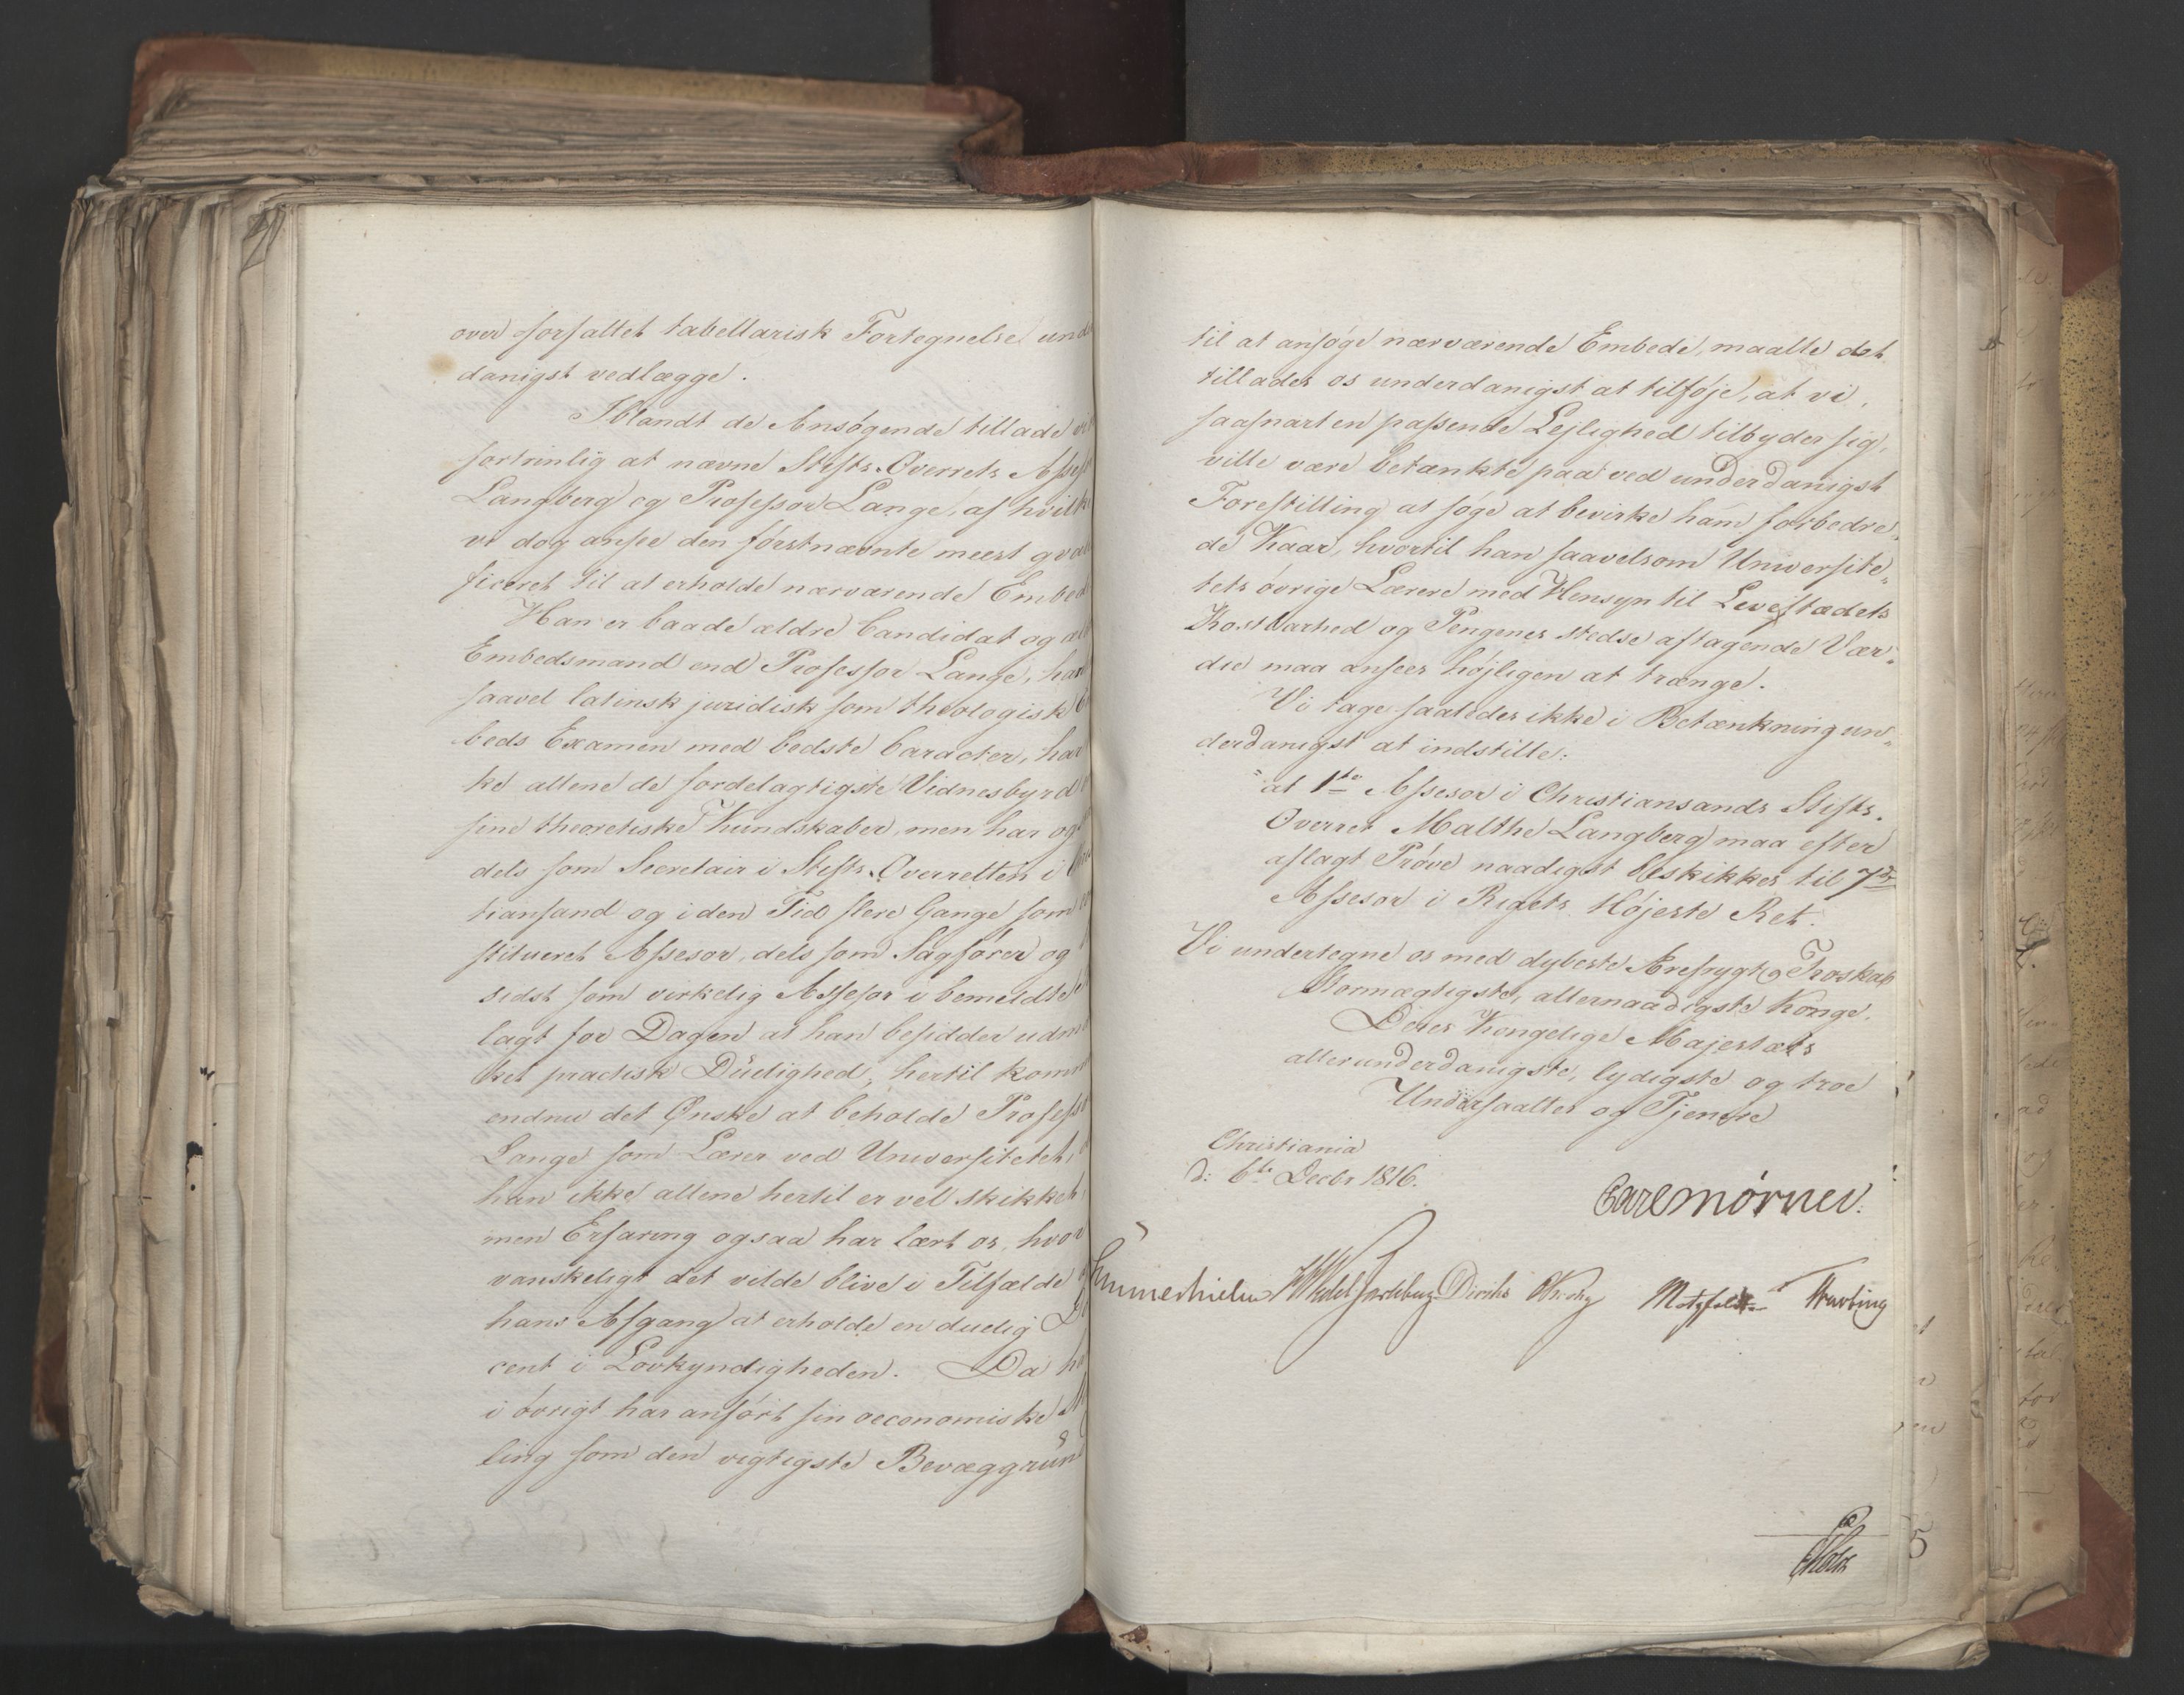 over forfattet tabellarisk Fortegnelse und
danigst vedlægge.
Iblandt de Ansøgende tillade vi
fortrinlig at nævne Stifts-Overrets Assess
Langberg og Professor Lange, af hvilke
vi dog ansee den førstnævnte meest qvali
ficeret til at erholde nærværende Embed
Han er baade ældre Candidat og æl
Embedsmand end Professor Lange, har
saavel latinsk juridisk som theologisk E
beds Examen med bedste Caracter, har
ke allene de fordelagtigste Vidnesbyrd
sine theoretiske Kundskaber, men har og
dels som Secretair i Stifts-Overretten i Chri
tiansand og i den Tid flere Gange som
stitueret Assesor, dels som Sagfører og
sidst som virkelig Assesor i bemeldte
lagt for Dagen at han besidder udm
ket practisk Düelighed, hertil komm
endnu det Ønske at beholde Profess
Lange som Lærer ved Universitetet,
han ikke allene hertil er vel skikket,
men Erfaring ogsaa har lært os, hvor
vanskeligt det vilde blive i Tilfælde
hans Afgang at erholde en duelig D
cent i Lovkyndigheden. Da h
i øvrigt har anført sin oeconomiske
ling som den vigtigste Bevæggrund
til at ansøge nærværende Embede, maatte det
tillades os underdanigst at tilføje, at vi,
saasnart en passende Lejlighed tilbyder sig,
ville være betænkte paa ved underdanigst
Forestilling at søge at bevirke ham forbedre„
de Kaar, hvortil han saavelsom Universite„
tets øvrige Lærere med Hensyn til Levestædets
Kostbarhed og Pengenes stedse aftagende Vær„
die maa ansees højligen at trænge.
Vi tage saaledes ikke i Betænkning un„
derdanigst at indstille:
"at 1ste Assesor i Christiansands Stifts-
Overret Malthe Langberg maa efter
aflagt Prøve naadigst beskikkes til 7de
Assesor i Rigets Højeste Ret.
Vi undertegne os med dybeste Ærefrygt og Troskab
Stormægtigste, allernaadigste Konge,
Deres Kongelige Majestæts
allerunderdanigste, lydigste og troe
Undersaatter og Tjenere
Christiania
d: 6te Decbr 1816.
Carl Mörner.
Sommerhielm HWedel Jarlsberg Diriks Krohg Motzfeldt Treschow
Holst
5